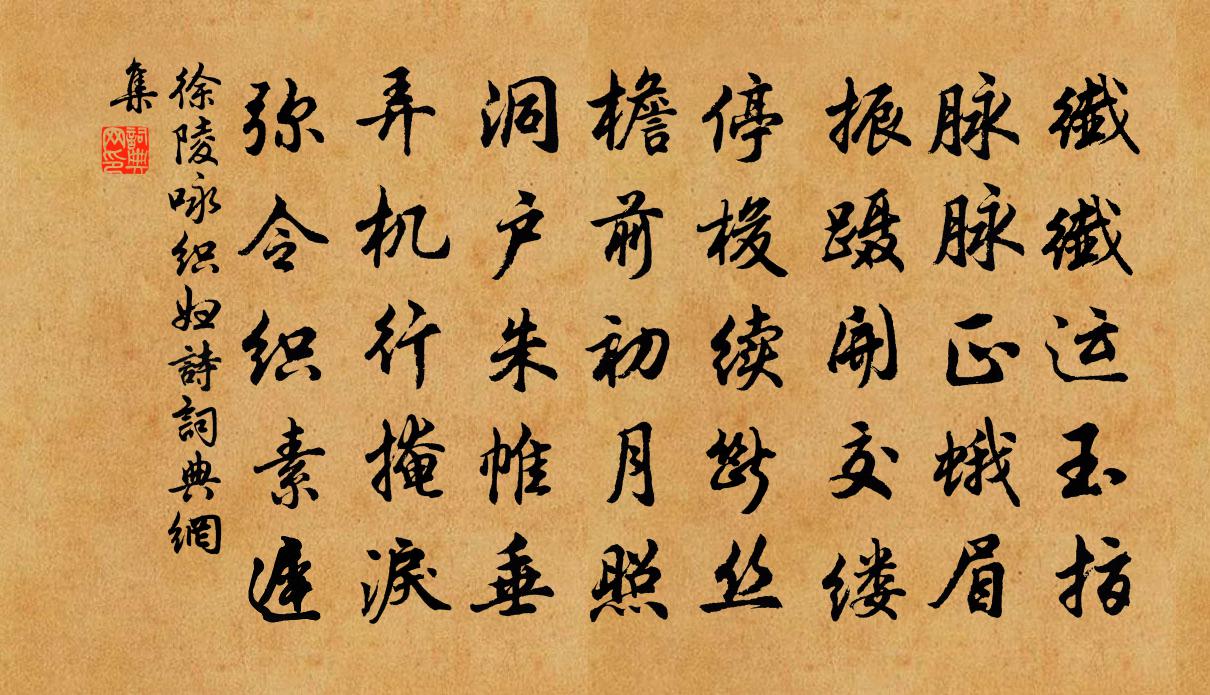 纖纖运玉指
脉脉正蛾眉
振蹑開交缕
停梭续斷丝
檐前初月照
洞户朱帷垂
弄机行掩淚
弥令织素遲
徐陵咏织妇詩詞典網
集
詞典网印